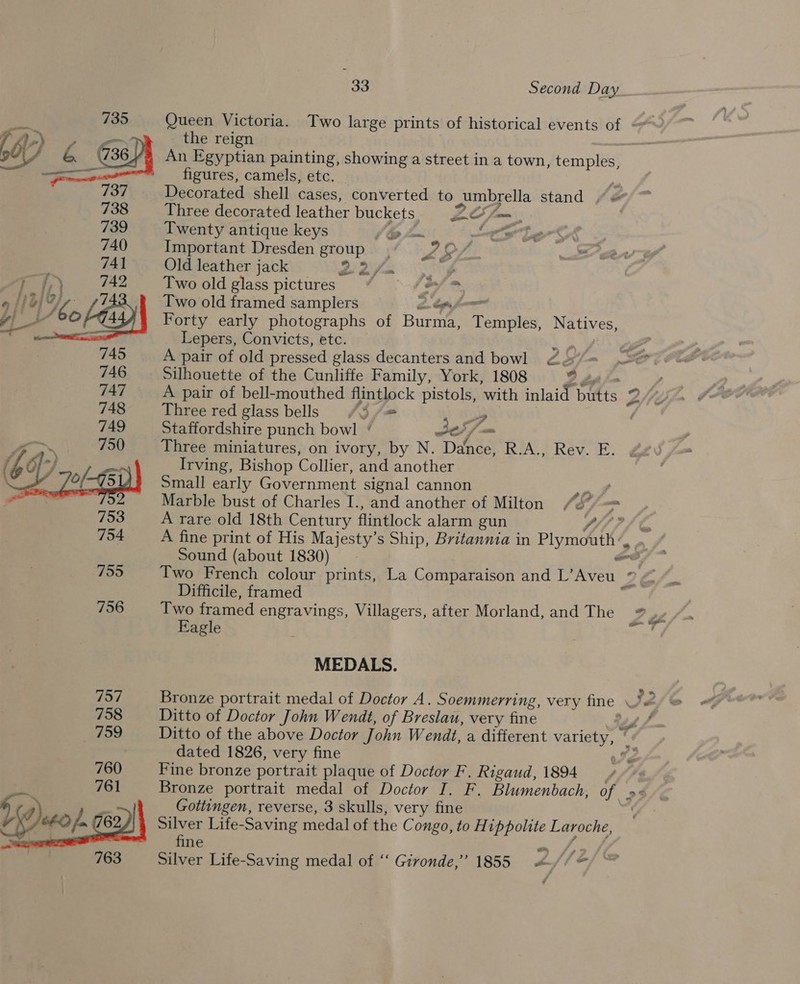 33 Second Day
735 Queen Victoria. Two large prints of historical events of
the reign
736 An Egyptian painting, showing a street in a town, temples,
figures, camels, etc.
737 Decorated shell cases, converted to umbrella stand
738 Three decorated leather buckets
739 Twenty antique keys
740 Important Dresden group
741 Old leather jack
742 Two old glass pictures
743 Two old framed samplers
744 Forty early photographs of Burma, Temples, Natives,
Lepers, Convicts, etc.
745 A pair of old pressed glass decanters and bowl
746 Silhouette of the Cunliffe Family, York, 1808
747 A pair of bell-mouthed flintlock pistols, with inlaid butts
748 Three red glass bells
749 Staffordshire punch bowl
750 Three miniatures, on ivory, by N. Dance, R.A., Rev. E.
Irving, Bishop Collier, and another
751 Small early Government signal cannon
752 Marble bust of Charles I., and another of Milton
753 A rare old 18th Century flintlock alarm gun
754 A fine print of His Majesty's Ship, Britannia in Plymouth
Sound (about 1830)
755 Two French colour prints, La Comparaison and L'Aveu
Difficile, framed
756 Two framed engravings, Villagers, after Morland, and The
Eagle
MEDALS.
757 Bronze portrait medal of Doctor A. Soemmerring, very fine
758 Ditto of Doctor John Wendt, of Breslau, very fine
759 Ditto of the above Doctor John Wendt, a different variety,
dated 1826, very fine
760 Fine bronze portrait plaque of Doctor F. Rigaud, 1894
761 Bronze portrait medal of Doctor I. F. Blumenbach, of
Gottingen, reverse, 3 skulls, very fine
762 Silver Life-Saving medal of the Congo, to Hippolite Laroche,
fine
763 Silver Life-Saving medal of “ Gironde,” 1855